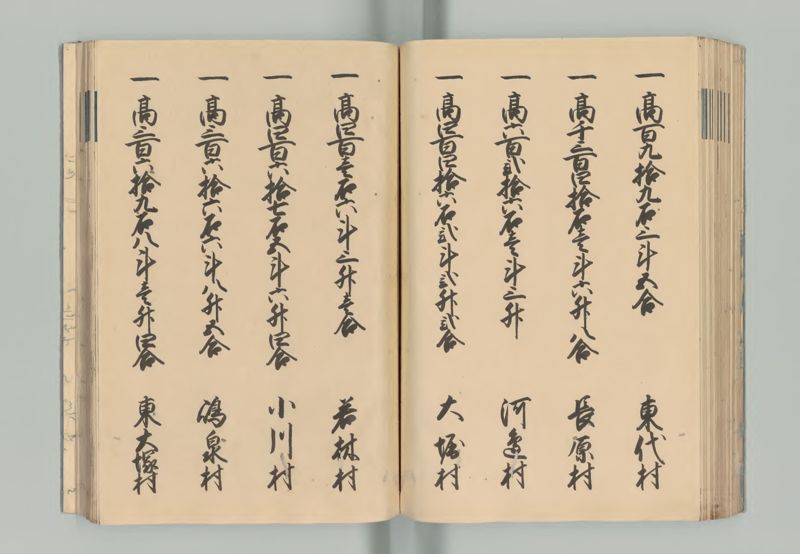 一 高百九拾九石三斗五合 東代村
一 高千三百四拾石壱斗六升八合 長原村
一 高六百弐拾六石壱斗三升 河邊村
一 高四百四拾六石弐斗弐升弐合 大堀村
一 高四百壱石六斗三升壱合 若林村
一 高四百六拾七石五斗六升四合 小川村
一 高三百六拾六石六斗八升五合 鴻泉村
一 高三百六拾九石八斗壱升四合 東大塚村